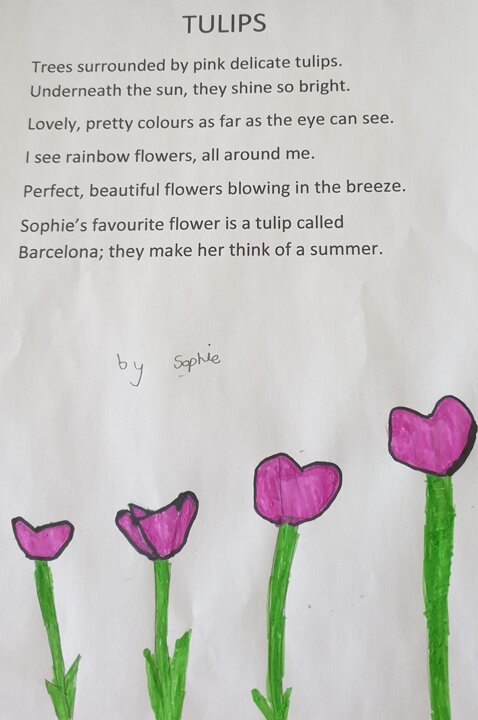 TULIPS
Trees surrounded by pink delicate tulips.
Underneath the sun, they shine so bright.
Lovely, pretty colours as far as the eye can see.
I see rainbow flowers, all around me.
Perfect, beautiful flowers blowing in the breeze.
Sophie’s favourite flower is a tulip called
Barcelona; they make her think of a summer.
by Sophie